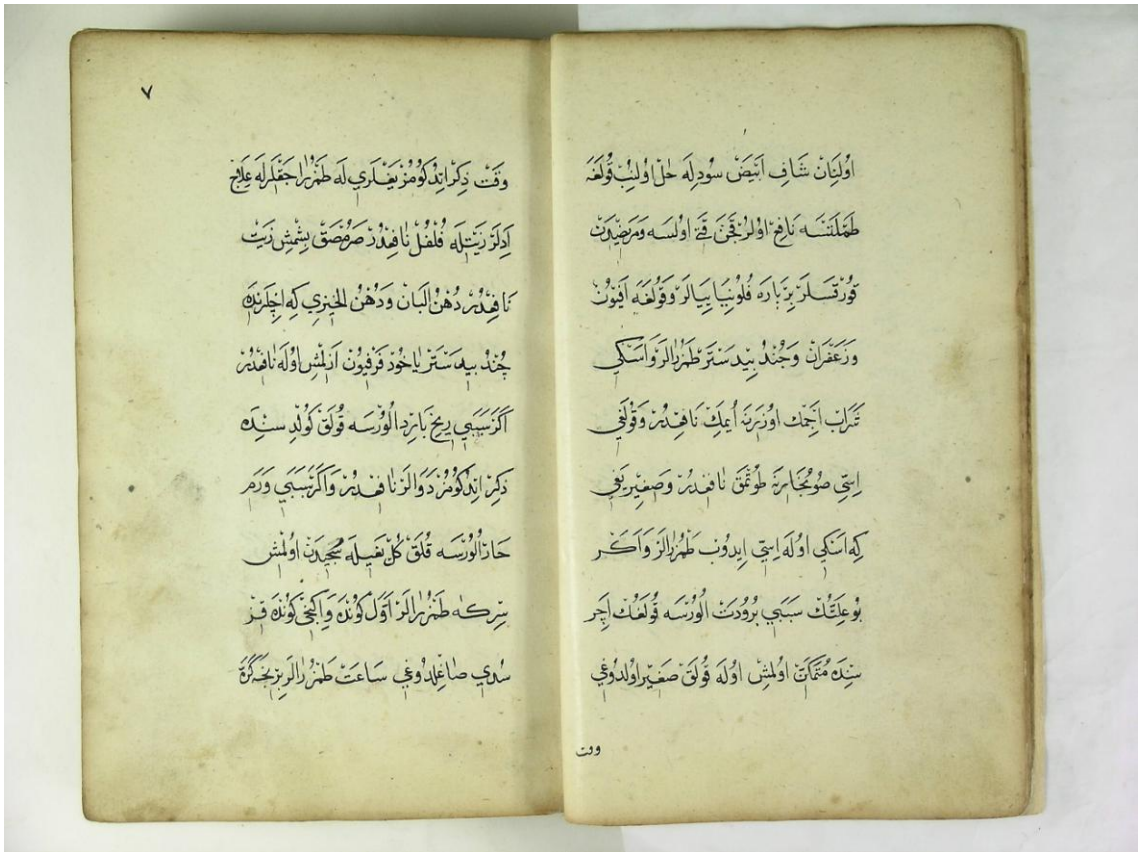 اَوُلِنَانْ شَافِ اَبْيَضْ سُودِلَه حَلْ اوُلِنُبْ قُولَغَه
طَمْلَتْسَه نَافِعْ اوُلُرْ قَچَنْ قَتِي اوُلسَه وَمَرَضِيدَنْ
قوُرْقسَلَرْ بِرْ پَارَه فُلوُنِيَا يِيَالَرْ وَقُولَغَه اَفْيُونْ
وَزَعْفَرَانْ وَجُنْدْ بِيدَسْتَرْ طَمْزُرَالَرْ وَاَسْكِي
شَرَابْ اِچْمَكْ اوُزَرِنَه اُيمَكْ نَافِعْدُرْ وَقُولَغِي
اِسِّي صُو بُخَارِنَه طوُتْمَقْ نَافِعْدُرْ وَصَغِيرْ يَغِي
كِه اَسْكِي اوُلَه اِسِّي اِيدوُبْ طَمْزُرَالَرْ وَاَكَرْ
بوُ عِلَّتُكْ سَبَبِي بُرُودَتْ الُورْسَه قُولَغُكْ اِچَر
سِنْدَه مُتَمَكِّنْ اوُلمِشْ اوُلَه قُولَقْ صَغِيرْ اوُلدوُغِي
وقت
٧
وَقْتْ ذِكِرْ اِتْدُكوُمُزْ يَغْلَرِي لَه طَمْزُرَاجَقْلَرْلَه عِلَاجْ
اِدَلَرْ زَيْتِلَه فُلْفُلْ نَافِعْدُرْ صَرْمُصَقْ بِشْمِشْ زَيْتْ
نَافِعْدُرْ دُهْنُ الْبَانْ وَدُهْنُ الْخِيرِي كِه اِچلَرِنْدَه
جُنْدْ بِيدَسْتَرْ يَاخُوذْ فَرْفِيُونْ اَزِلْمِشْ اوُلَه نَافِعْدُرْ
اَكَرْ سَبَبِي رِيحْ بَارِدْ الُورْسَه قُولَقْ كَوُلدِسِنْدَه
ذِكِرْ اِتْدُكوُمُزْ دَوَالَرْ نَافِعْدُرْ وَاَكَرْ سَبَبِي وَرَمِ
حَارْ الُورْسَه قُلَقْ كُلْ يَغِيلَه سُجِيدَنْ اوُلمِشْ
سِرْكَه طَمْزُرَالَرْ اَوَّلْ كُونْدَه وَاِكِنْجِي كُونْدَه قِزْ
سُدِي صَاغِلدوُغِي سَاعَتْ طَمْزُرَالَرْ بِرْ نِيجَه كَرَّه